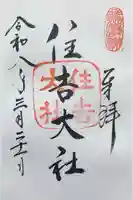 奉拝
住吉大社
令和八年三月二十一日
住吉
大社